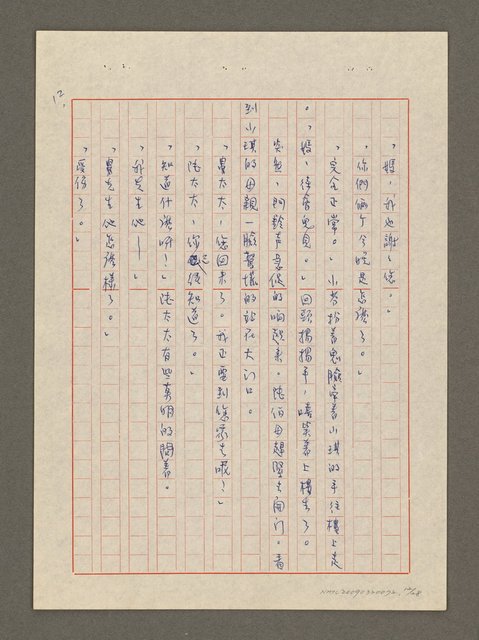 12.
「媽，我也謝謝您。」
「你們倆個今晚是怎麼了。」
「完全正常。」小芳扮著鬼臉牽著小琪的手往樓上走
。「媽，待會兒見。」回頭揚揚手，嘻笑著上樓去了。
突然，門鈴声急促的响起來。陸伯母趕緊去開门。看
到小琪的母親一臉驚慌的站在大门口。
「曼太太，您回來了。我正電到您家去呢！」
「陸太太，你已經知道了。」
「知道什麼呀！」陸太太有些莫明的問着。
「我先生他──」
「曼先生他怎麼樣了。」
「受傷了。」
NMTL20090320072, 12/28